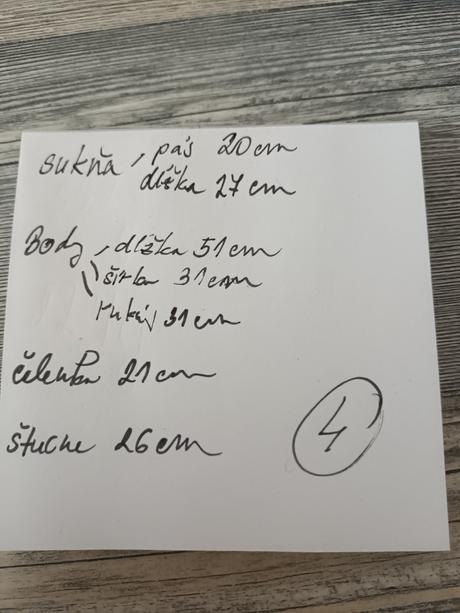 sukňa, pás 20cm
dĺžka 27cm
Body, dĺžka 51cm
šírka 31cm
rukáv 31cm
čelenka 21cm
štucne 26cm
4